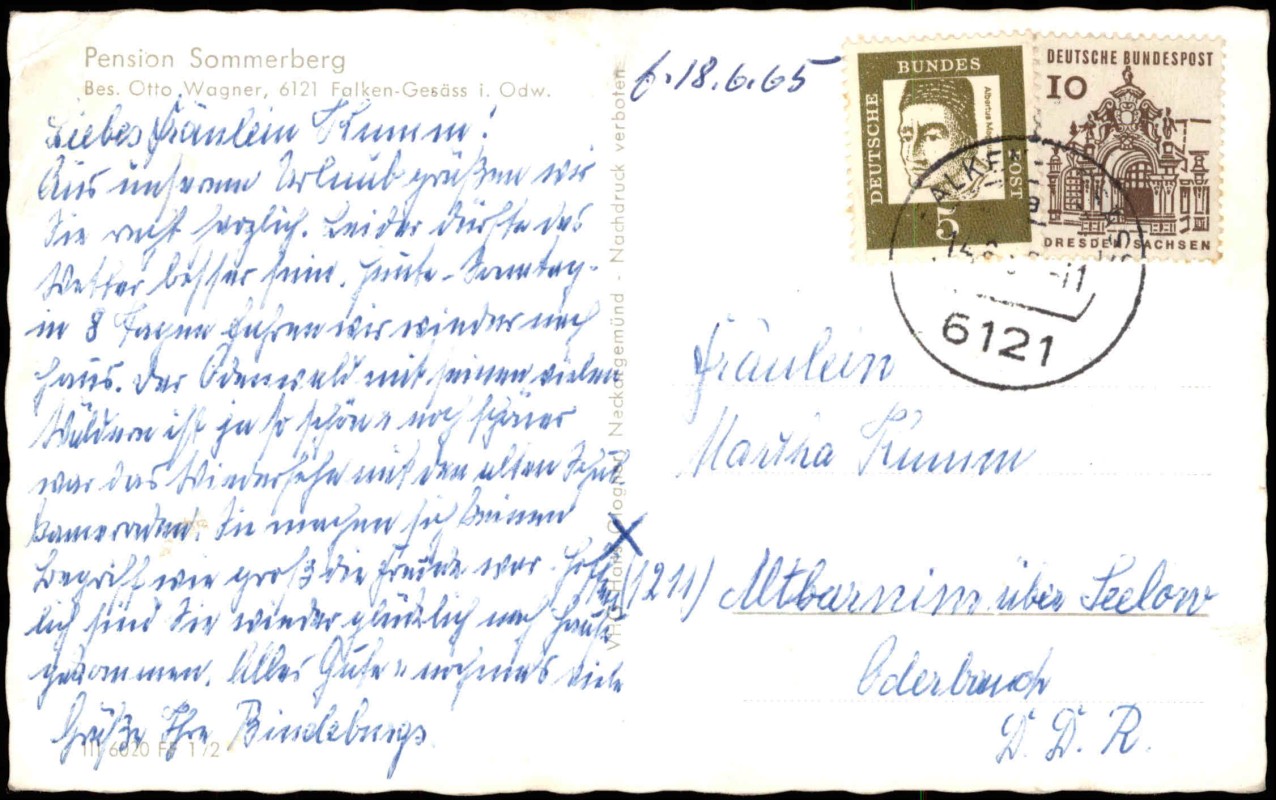 Pension Sommerberg
Bes. Otto Wagner, 6121 Falken-Gesäss i. Odw.
Liebes Fräulein Kumm!
Aus unserem Urlaub grüßen wir
Sie recht herzlich. Leider dürfte das
Wetter besser sein. Heute - Sonntag -
in 8 Tagen fahren wir wieder nach
Haus. Der Odenwald mit seinen vielen
Wäldern ist ja so schön u. noch schöner
war das Wiedersehn mit den alten Schul
kameraden. Sie machen sich keinen
Begriff wie groß die Freude war. Hoffent
lich sind Sie wieder glücklich nach Hause
gekommen. Alles Gute u. nochmals viele
Grüße Ihre Bindeburgs
III 6020 FF 1/2
Neckargemünd - Nachdruck verboten
18.6.65
DEUTSCHE BUNDESPOST
5
DEUTSCHE BUNDESPOST
10
DRESDEN/SACHSEN
6121
Fräulein
Martha Kumm
X
(1211) Altbarnim über Seelow
Oderbruch
D. D. R.